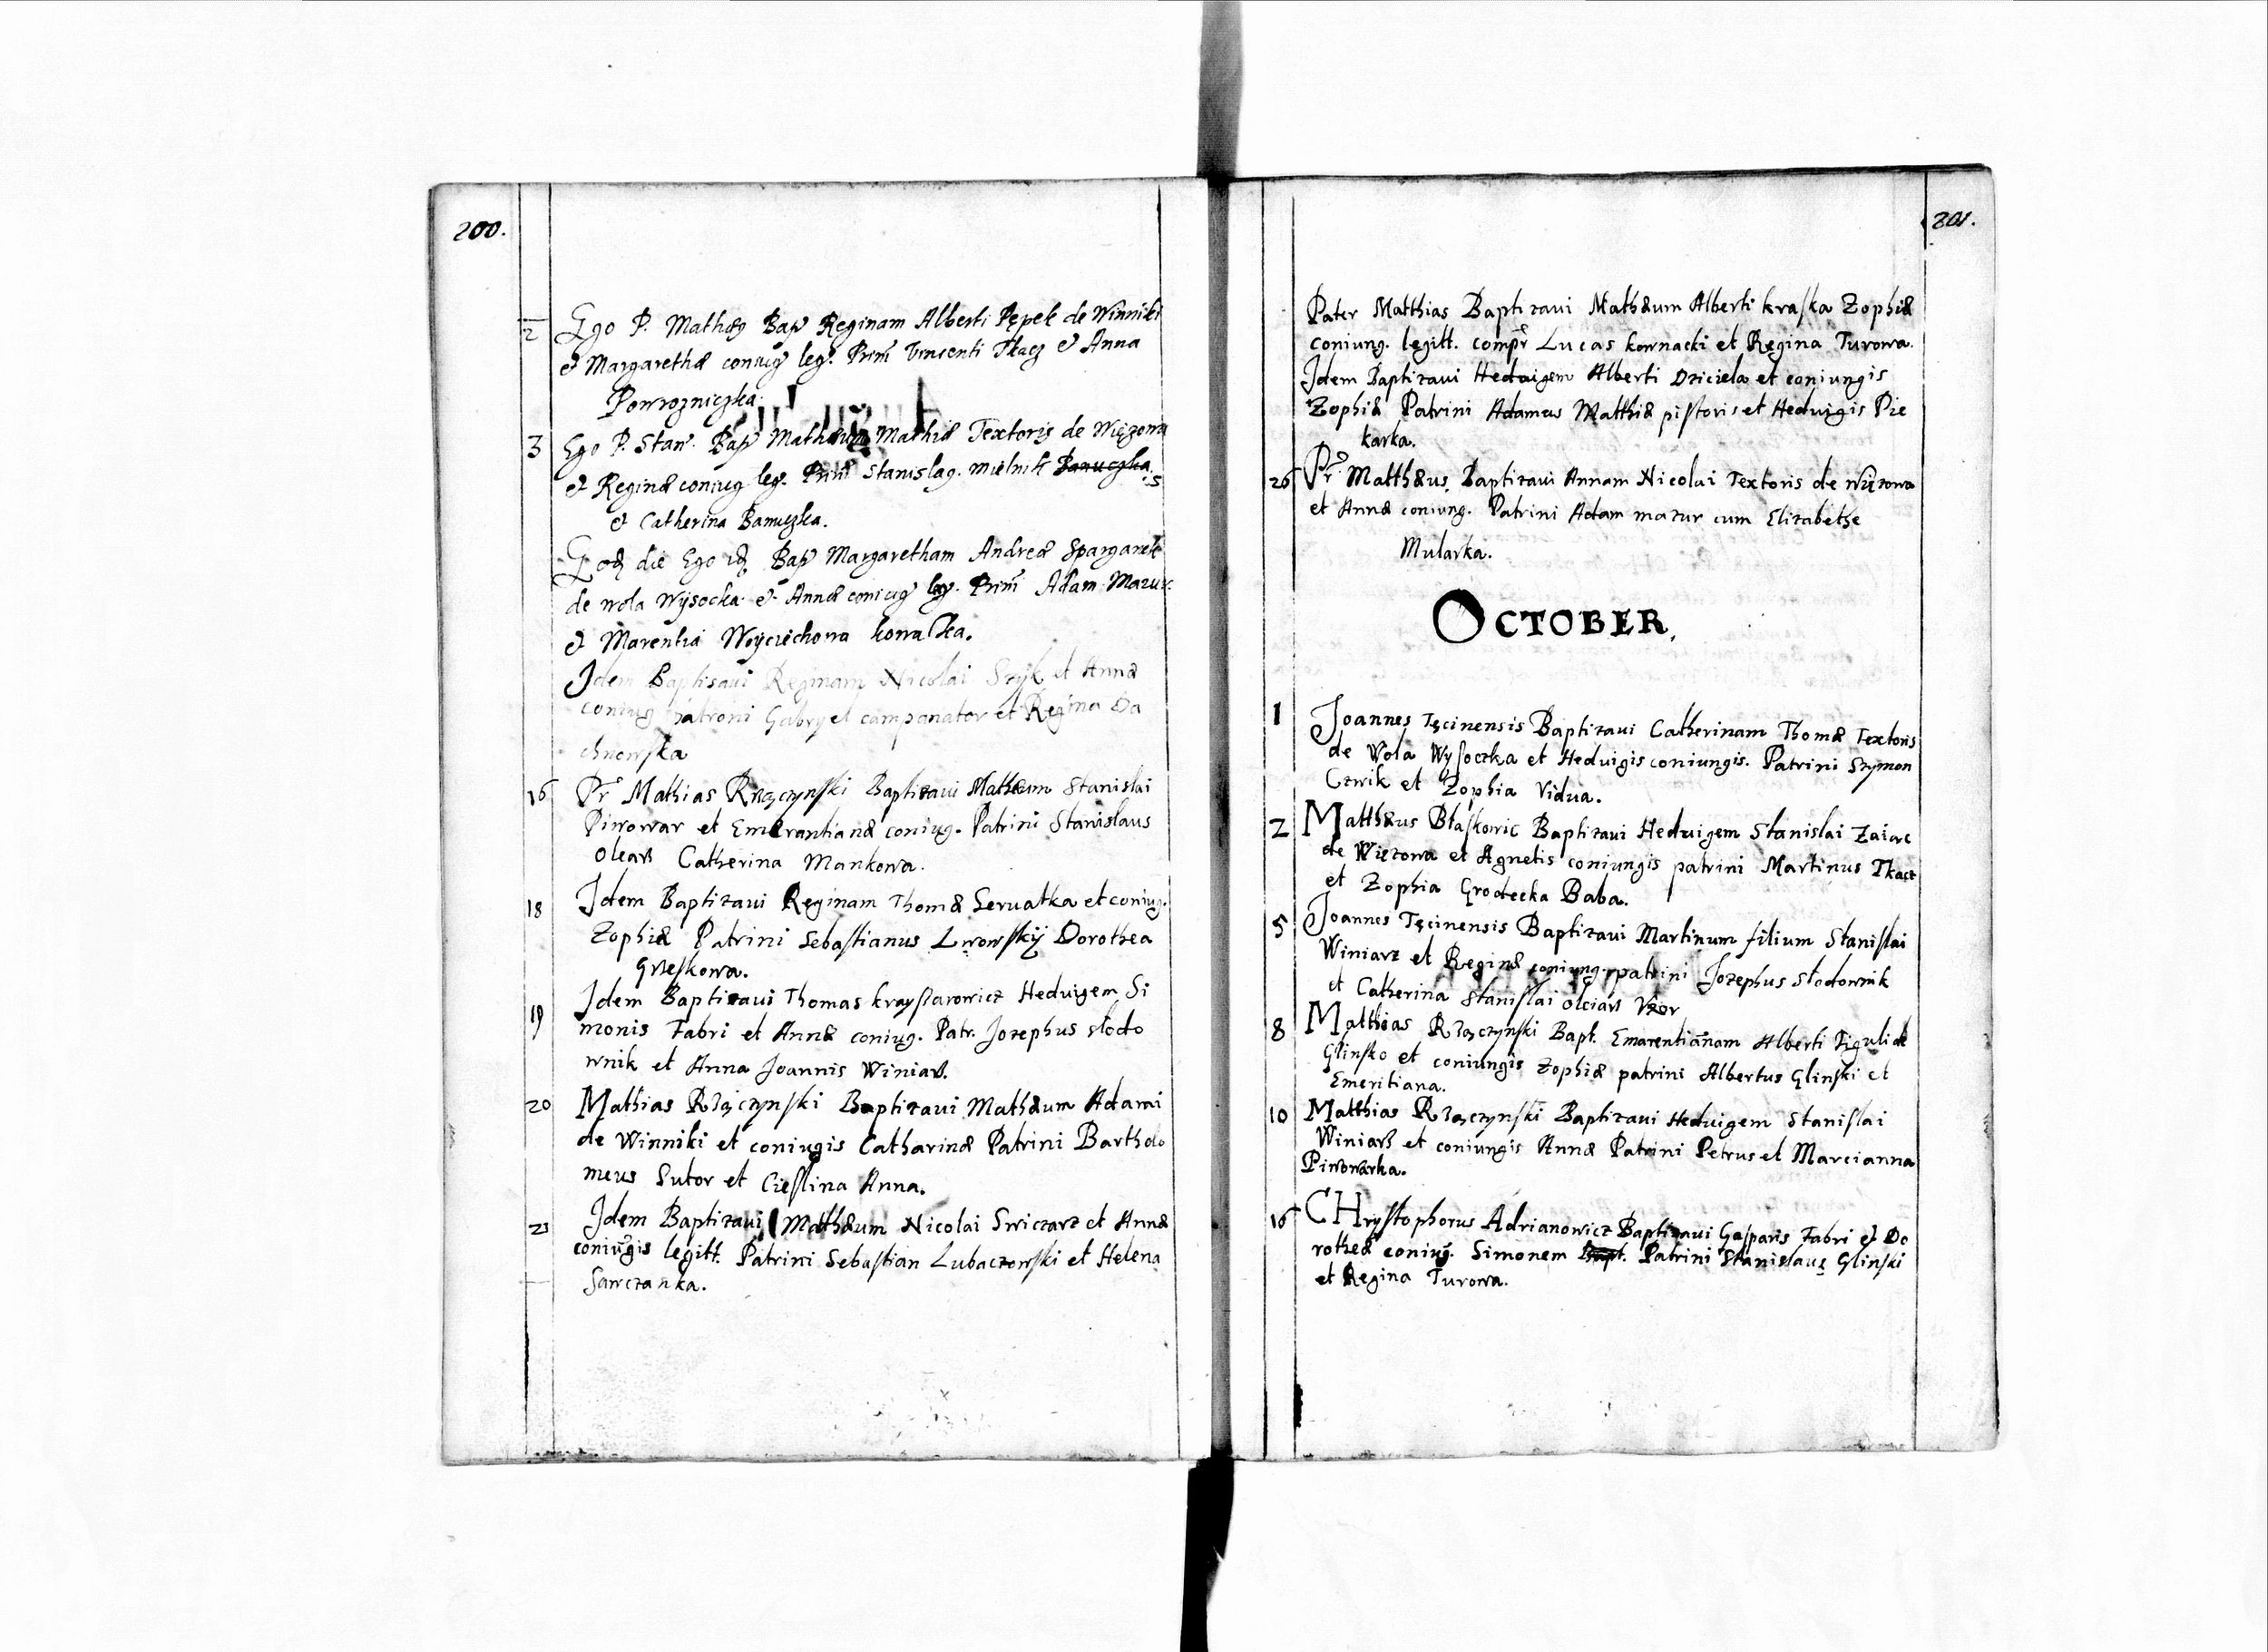 200.
2 Ego P. Mathæg Bap Reginam Alberti Pępek de Winniki
et Margarethæ coniug leg. Prim Vincenti Tkacz et Anna
Powrozniczka.
3 Ego P. Stan. Bap Mathæum Mathiæ Textoris de Więzowa
et Reginæ coniug leg. Prim Stanislag. Mielnik Banuczka.
et Catherina Banuczka.
Eod die Ego id Bap Margaretham Andreæ Spargarek
de Wola Wysocka et Annæ coniug leg. Prim Adam Mazur
et Marentia Woyciechowa kowalka.
Idem Baptisaui Reginam Nicolai Szyk et Annæ
coniug patroni Gabryel campanator et Regina Da
chnowska
16 Pr Mathias Rzączynski Baptizaui Mathæum Stanislai
Piwowar et Emerantianæ coniug. Patrini Stanislaus
Oleaß Catherina Mankowa.
18 Idem Baptizaui Reginam Thomæ Seruatka et coniug.
Zophiæ Patrini Sebastianus Lwowskij Dorothea
Grzeskowa.
19 Idem Baptizaui Thomas krzysztarowicz Heduigem Si
monis Fabri et Annæ coniug. Patr. Jozephus slodo
wnik et Anna Joannis Winiaß.
20 Mathias Rzączynski Baptizaui Mathæum Adami
de Winniki et coniugis Catharinæ Patrini Bartholo
meus Sutor et Cieslina Anna.
21 Idem Baptizaui Mathæum Nicolai Swiczarz et Annæ
coniugis legitt. Patrini Sebastian Lubaczowski et Helena
Sawczanka.
201.
Pater Matthias Baptizaui Mathæum Alberti kraska Zophiæ
coniung. legitt. compr Lucas kownacki et Regina Turowa.
Idem Baptizaui Heduigem Alberti Dziciela et coniungis
Zophiæ Patrini Adamus Matthiæ pistoris et Heduigis Pie
karka.
26 Pr Matthæus Baptizaui Annam Nicolai Textoris de Więzowa
et Annæ coniung. Patrini Adam mazur cum Elizabethe
Mularka.
OCTOBER.
1 Joannes Tęcinensis Baptizaui Catherinam Thomæ Textoris
de Wola Wysoczka et Heduigis coniungis. Patrini Szymon
Czwik et Zophia Vidua.
2 Matthæus Błaskowic Baptizaui Heduigem Stanislai Zaiac
de Więzowa et Agnetis coniungis patrini Martinus Tkacz
et Zophia Grodecka Baba.
5 Joannes Tęcinensis Baptizaui Martinum filium Stanislai
Winiarz et Reginæ coniung. patrini Jozephus slodownik
et Catherina Stanislai Olciaß Vxor
8 Matthias Rzączynski Bapt. Emarentianam Alberti Figuli de
Glinsko et coniungis Zophiæ patrini Albertus Glinski et
Emeritiana.
10 Matthias Rzączynski Baptizaui Heduigem Stanislai
Winiarß et coniungis Annæ Patrini Petrus et Marcianna
Piwowarka.
16 CHrystophorus Adrianowicz Baptizaui Gasparis Fabri et Do
rotheæ coniug. Simonem Bapt. Patrini Stanislaus Glinski
et Regina Turowa.